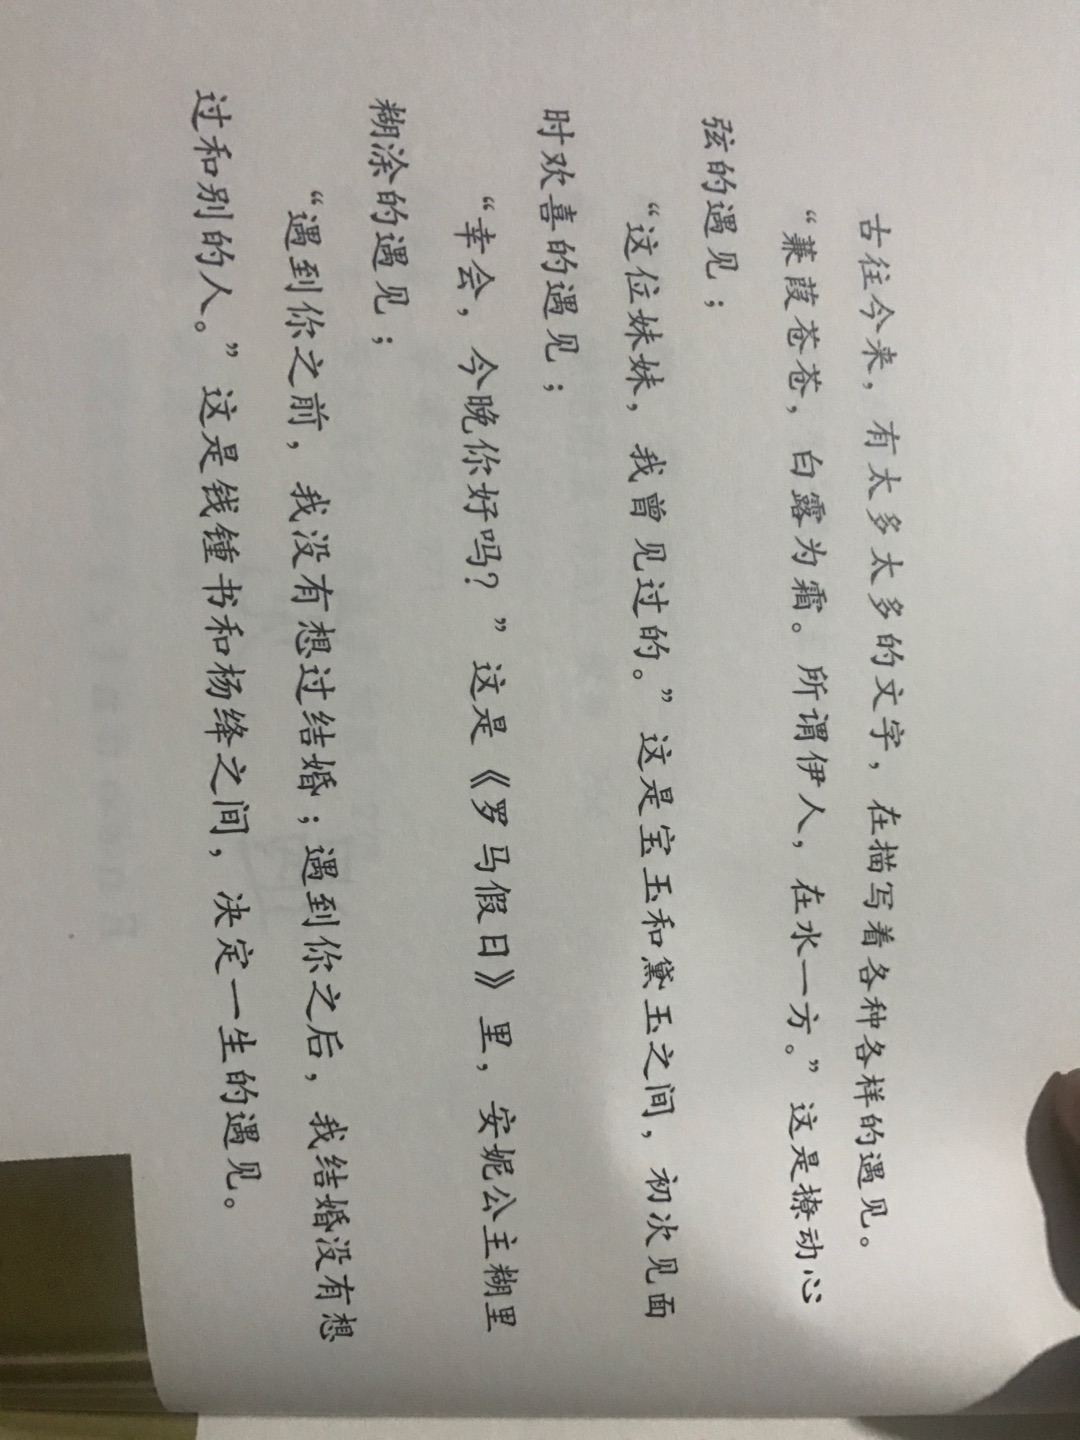 古往今来，有太多太多的文字，在描写着各种各样的遇见。
“蒹葭苍苍，白露为霜。所谓伊人，在水一方。”这是撩动心
弦的遇见；
“这位妹妹，我曾见过的。”这是宝玉和黛玉之间，初次见面
时欢喜的遇见；
“幸会，今晚你好吗？”这是《罗马假日》里，安妮公主糊里
糊涂的遇见；
“遇到你之前，我没有想过结婚；遇到你之后，我结婚没有想
过和别的人。”这是钱锺书和杨绛之间，决定一生的遇见。